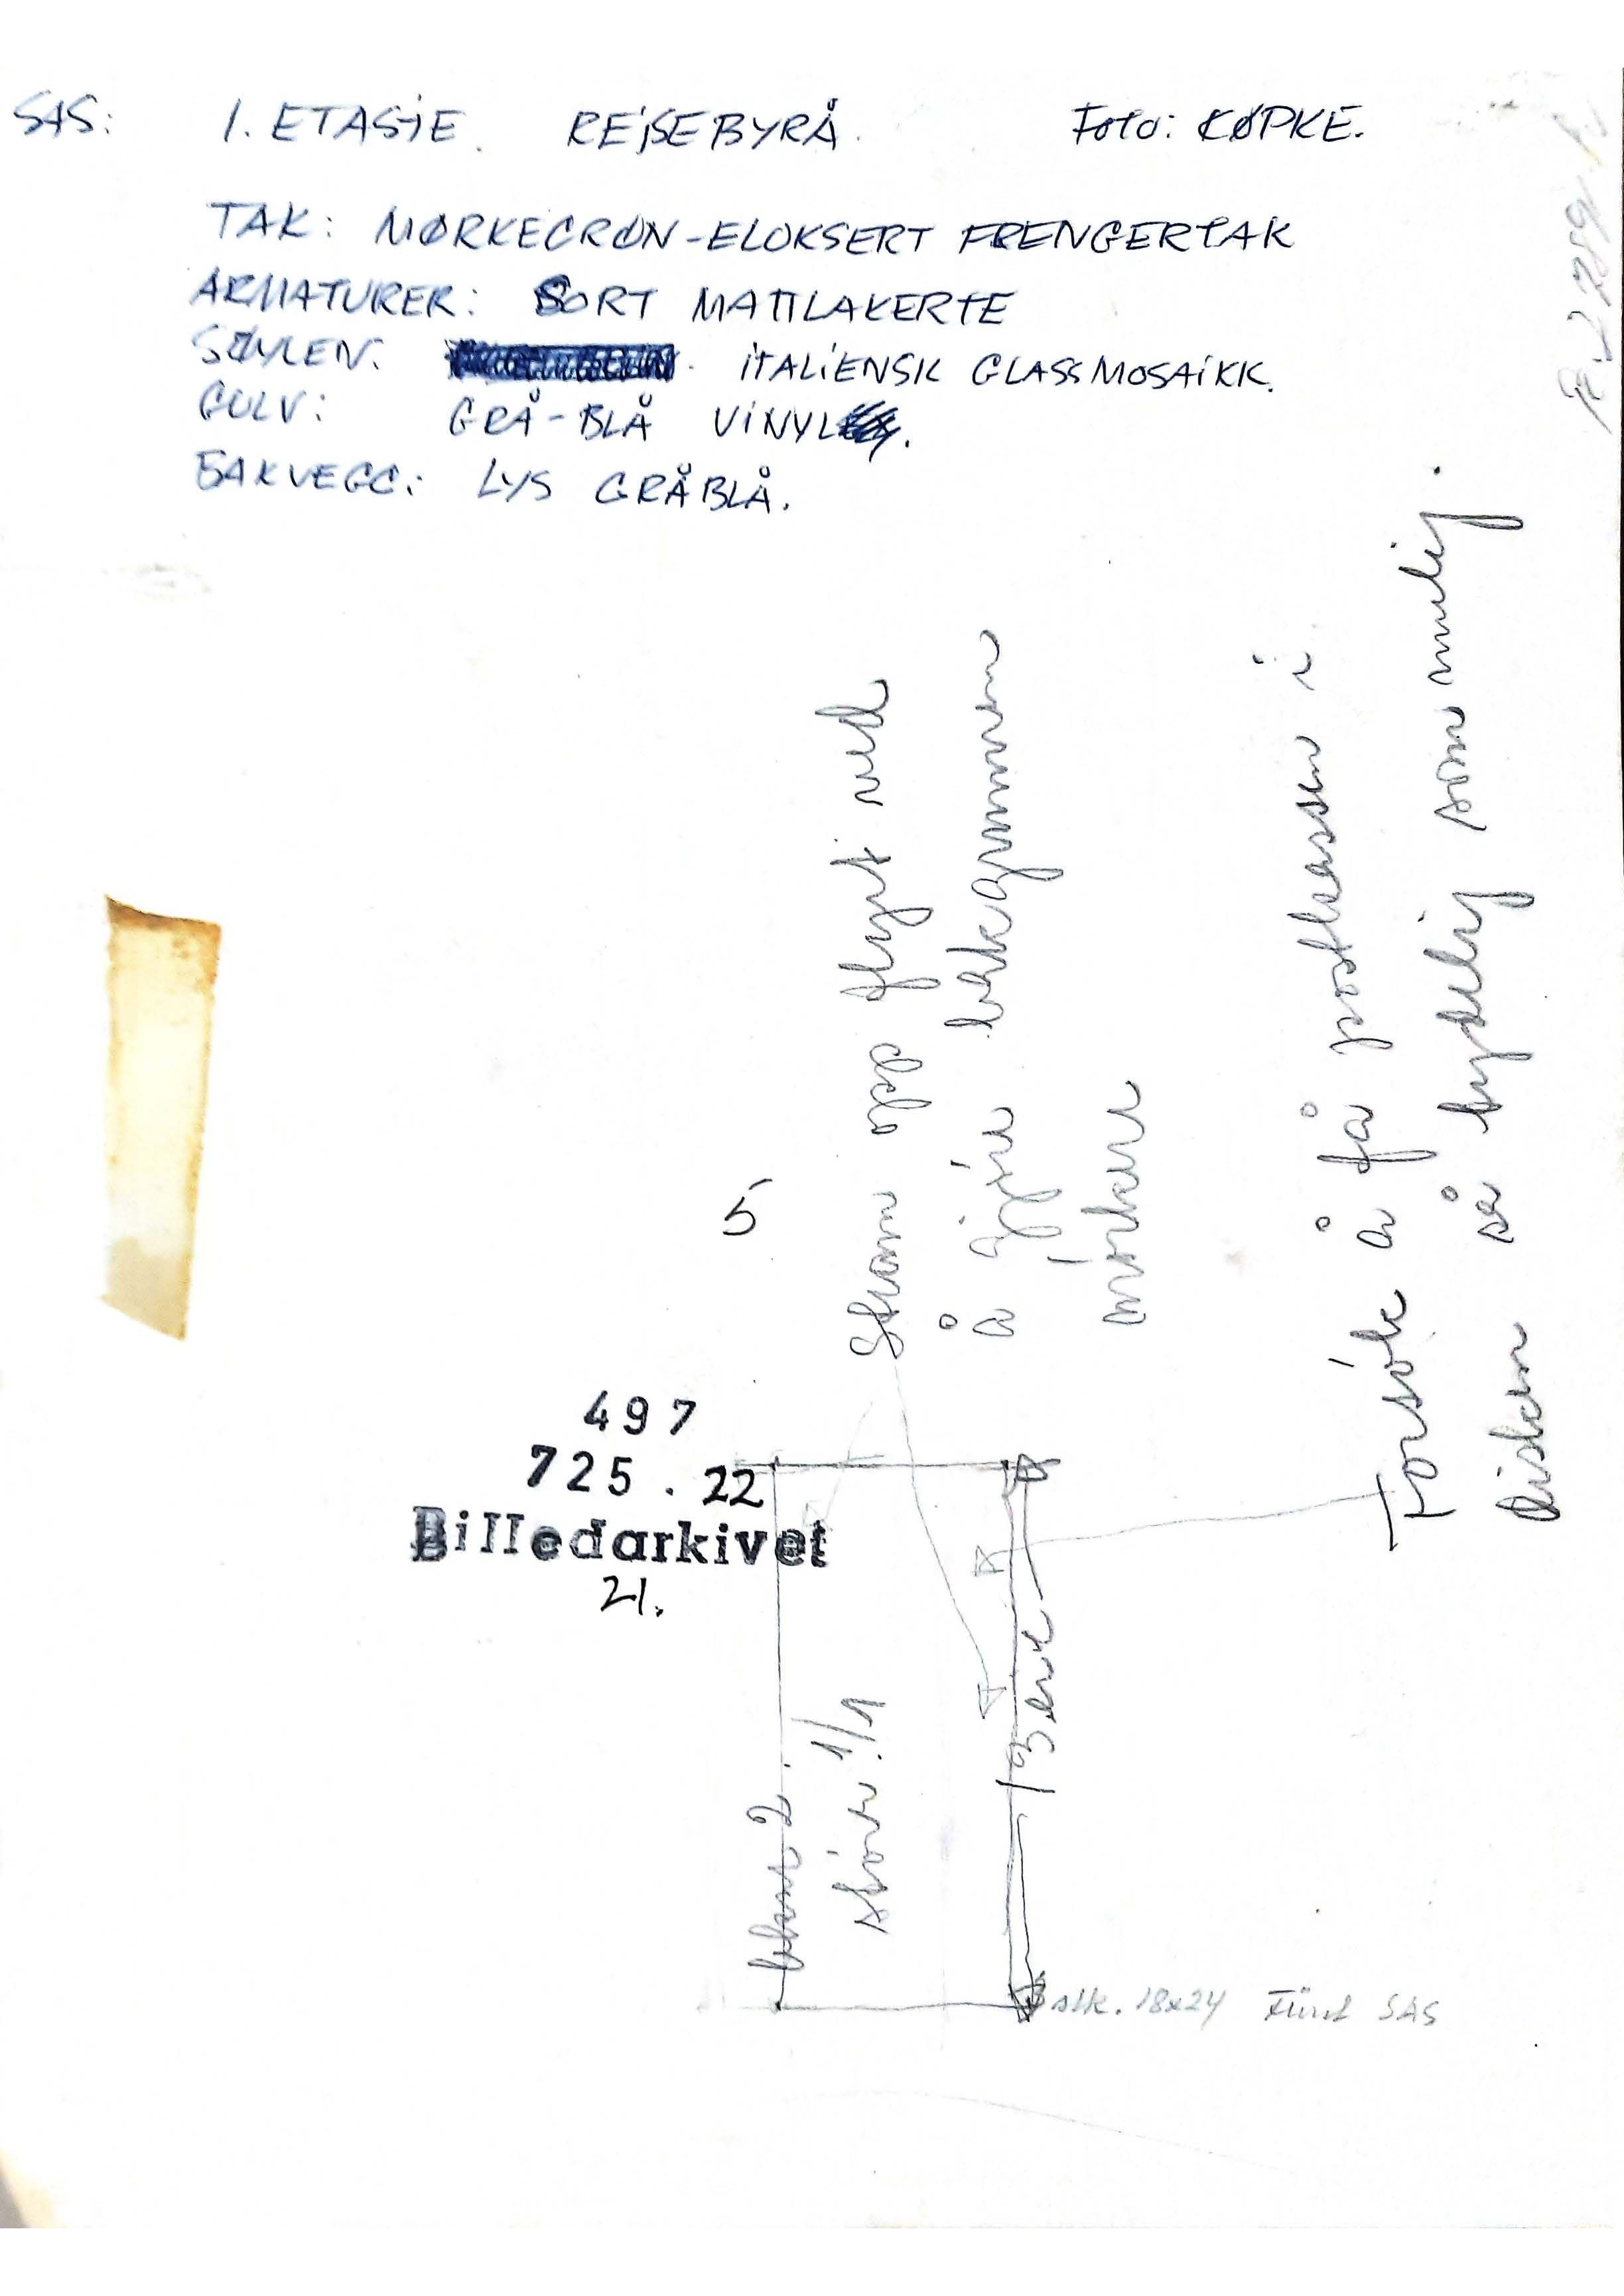 SAS: 1. ETASJE. REISEBYRÅ. Foto: KØPKE.
TAK: MØRKEGRØN-ELOKSERT FRENGERTAK
ARMATURER: SORT MATTLAKERTE
SØYLEN: ITALIENSK GLASSMOSAIKK.
GULV: GRÅ-BLÅ VINYL.
BAKVEGG: LYS GRÅBLÅ.
Stram opp flyet ved
å gjøre bakgrunnen
mørkere
Forsøk å få postkassen i
disken så tydelig som mulig.
5
497
725.22
Billedarkivet
21.
2.
større 1/1
13 cm
stk. 18x24 SAS